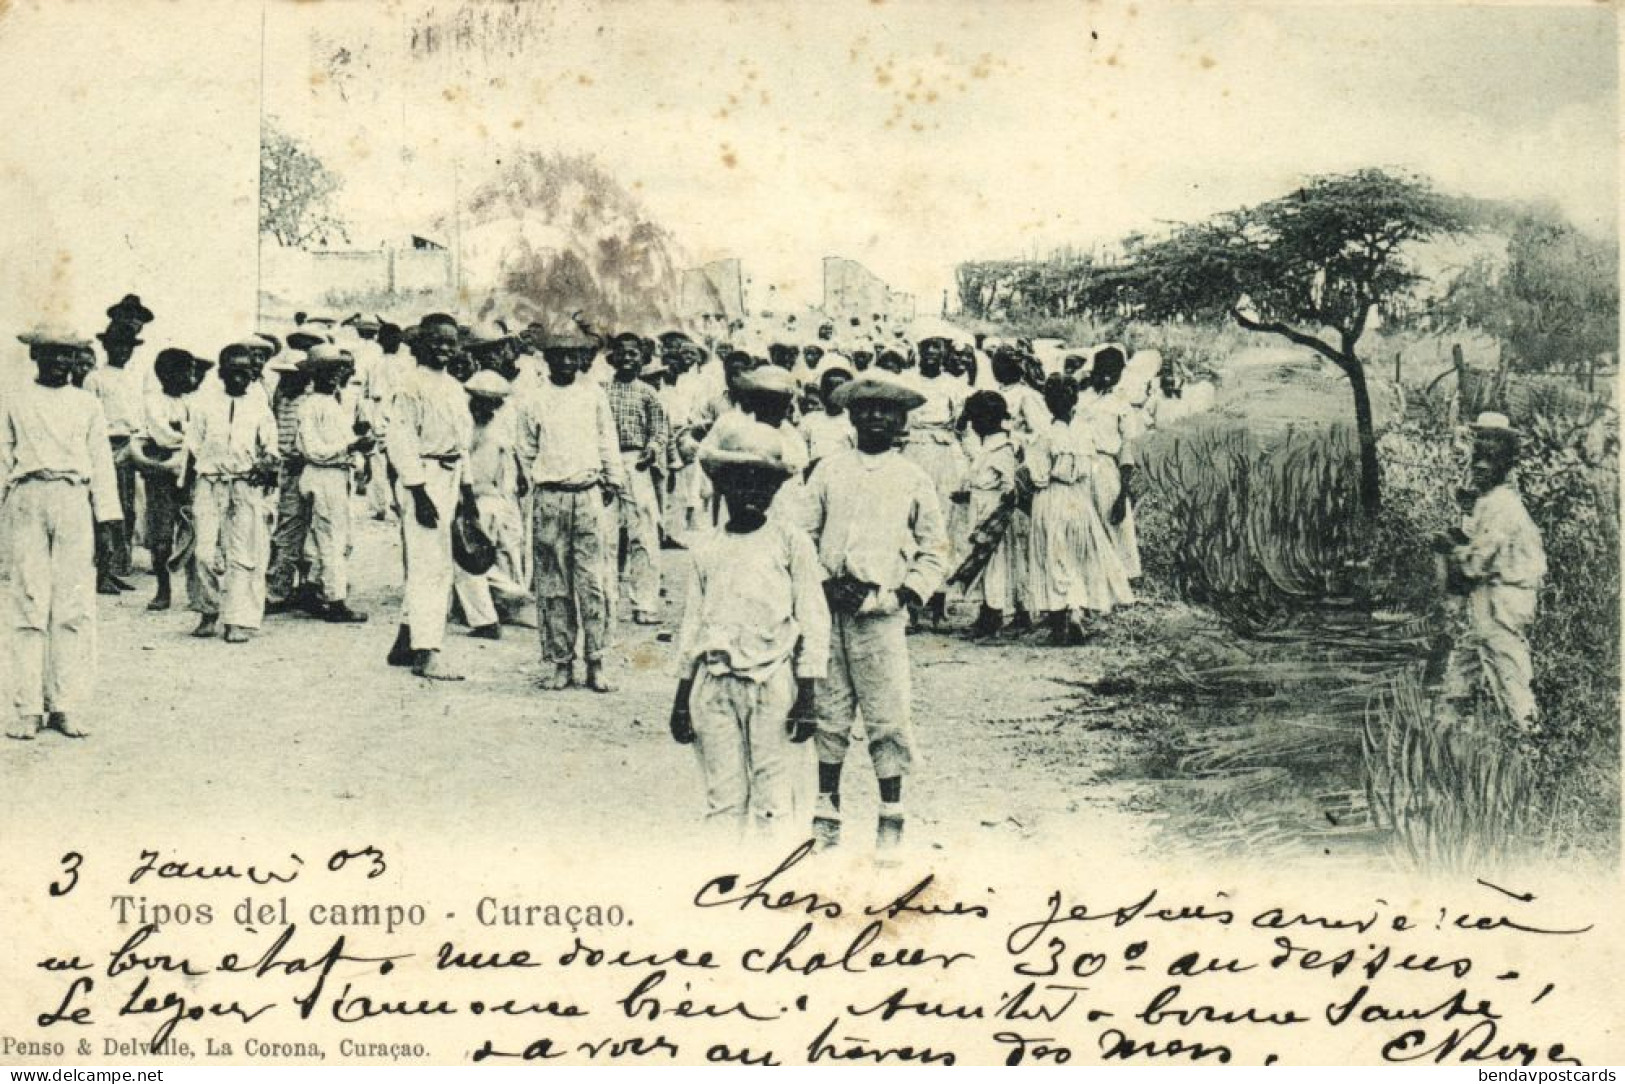 3 Janvier 03
Tipos del campo - Curaçao.
Chers Amis je suis arrivé ici
en bon état. une douce chaleur 30º au dessus.
Le séjour s'annonce bien. Amitié & bonne Santé
Penso & Delvalle, La Corona, Curaçao.
à vous au travers des mers.
delcampe.net
bendavpostcards